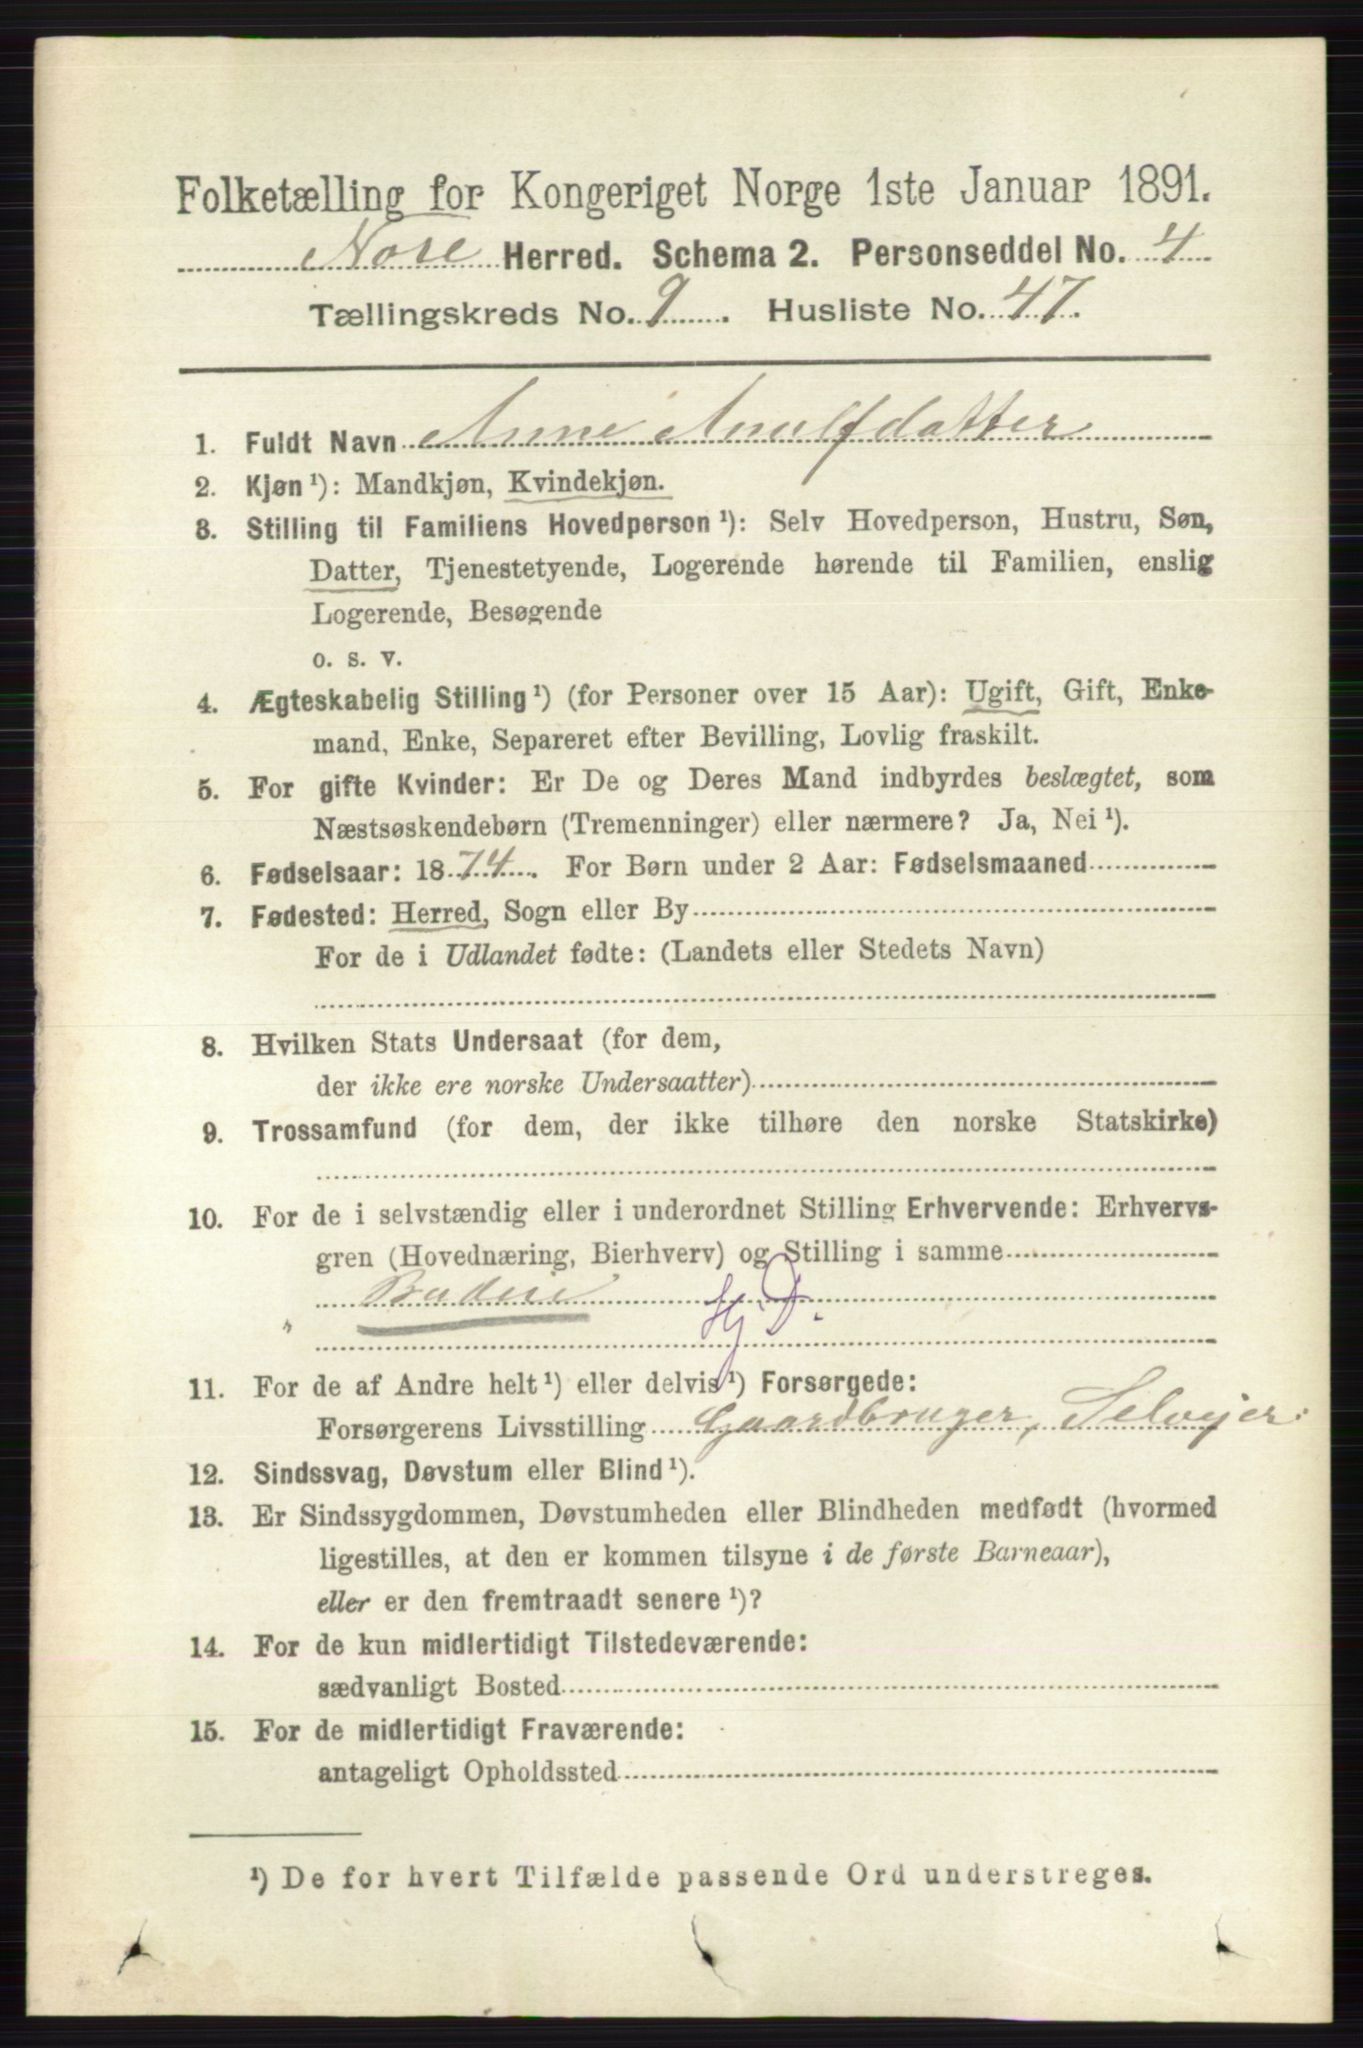 Folketælling for Kongeriget Norge 1ste Januar 1891.
Nore Herred. Schema 2. Personseddel No. 4
Tællingskreds No. 9. Husliste No. 47.
1. Fuldt Navn Anne Arnulfdatter
2. Kjøn ¹): Mandkjøn, Kvindekjøn.
3. Stilling til Familiens Hovedperson ¹): Selv Hovedperson, Hustru, Søn,
Datter, Tjenestetyende, Logerende hørende til Familien, enslig
Logerende, Besøgende
o. s. v.
4. Ægteskabelig Stilling ¹) (for Personer over 15 Aar): Ugift, Gift, Enke-
mand, Enke, Separeret efter Bevilling, Lovlig fraskilt.
5. For gifte Kvinder: Er De og Deres Mand indbyrdes beslægtet, som
Næstsøskendebørn (Tremenninger) eller nærmere? Ja, Nei ¹).
6. Fødselsaar: 1874. For Børn under 2 Aar: Fødselsmaaned
7. Fødested: Herred, Sogn eller By
For de i Udlandet fødte: (Landets eller Stedets Navn)
8. Hvilken Stats Undersaat (for dem,
der ikke ere norske Undersaatter)
9. Trossamfund (for dem, der ikke tilhøre den norske Statskirke)
10. For de i selvstændig eller i underordnet Stilling Erhvervende: Erhvervs-
gren (Hovednæring, Bierhverv) og Stilling i samme
Budeie Hj. D.
11. For de af Andre helt ¹) eller delvis ¹) Forsørgede:
Forsørgerens Livsstilling Gaardbruger, Selvejer.
12. Sindssvag, Døvstum eller Blind ¹).
13. Er Sindssygdommen, Døvstumheden eller Blindheden medfødt (hvormed
ligestilles, at den er kommen tilsyne i de første Barneaar),
eller er den fremtraadt senere ¹)?
14. For de kun midlertidigt Tilstedeværende:
sædvanligt Bosted
15. For de midlertidigt Fraværende:
antageligt Opholdssted
¹) De for hvert Tilfælde passende Ord understreges.